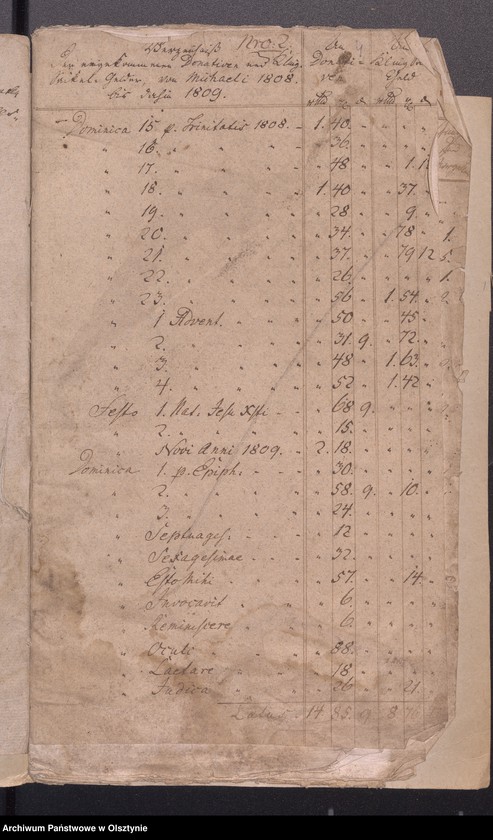 Nro: 2.
Verzeichniß
Der eingekommenen Donativen und Kling-
Säckel-Gelder, von Michaeli 1808.
bis dahin 1809.
Dominica 15 p. Trinitatis 1808. 1. 40.
" 16. 36.
" 17. 48 1.
" 18. 1. 40 37.
" 19. 28 9.
" 20. 34 78 1.
" 21. 37. 79 12 5.
" 22. 26. 1.
" 23. 56 1. 54.
" 1 Advent. 50 45
" 2. 31 9. 72.
" 3. 48 1. 63.
" 4. 52 1. 42
Festo 1. Nat. Jesu Xsti 68 9.
" 2. 15.
" Novi Anni 1809. 2. 18.
Dominica 1. p. Epiph. 30.
" 2. 58. 9. 10.
" 3. 24.
" Septuages. 12
" Sexagesimae 32.
" Esto Mihi 57. 14.
" Invocavit 6.
" Reminiscere 6.
" Oculi 88.
" Laetare 18.
" Judica 26 21.
Latus 14 55. 9. 8
Archiwum Państwowe w Olsztynie